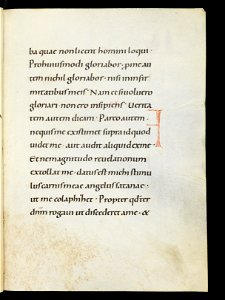 ba quae non licent homini loqui ·
Pro huius modi gloriabor · pme au
tem nihil gloriabor · nisi in infir
mitatibus meis · Nam et si voluero
gloriari · non ero insipiens · Verita
tem autem dicam · Parco autem ·
nequis me existimet supra id quod
videt me · aut audit aliquid ex me ·
Et ne magnitudo revelationum
extollat me · datus est michi stimu
lus carnis meae angelus satanae ·
ut me colaphizet · Propter qd ter
dnm rogavi ut discederet a me · &